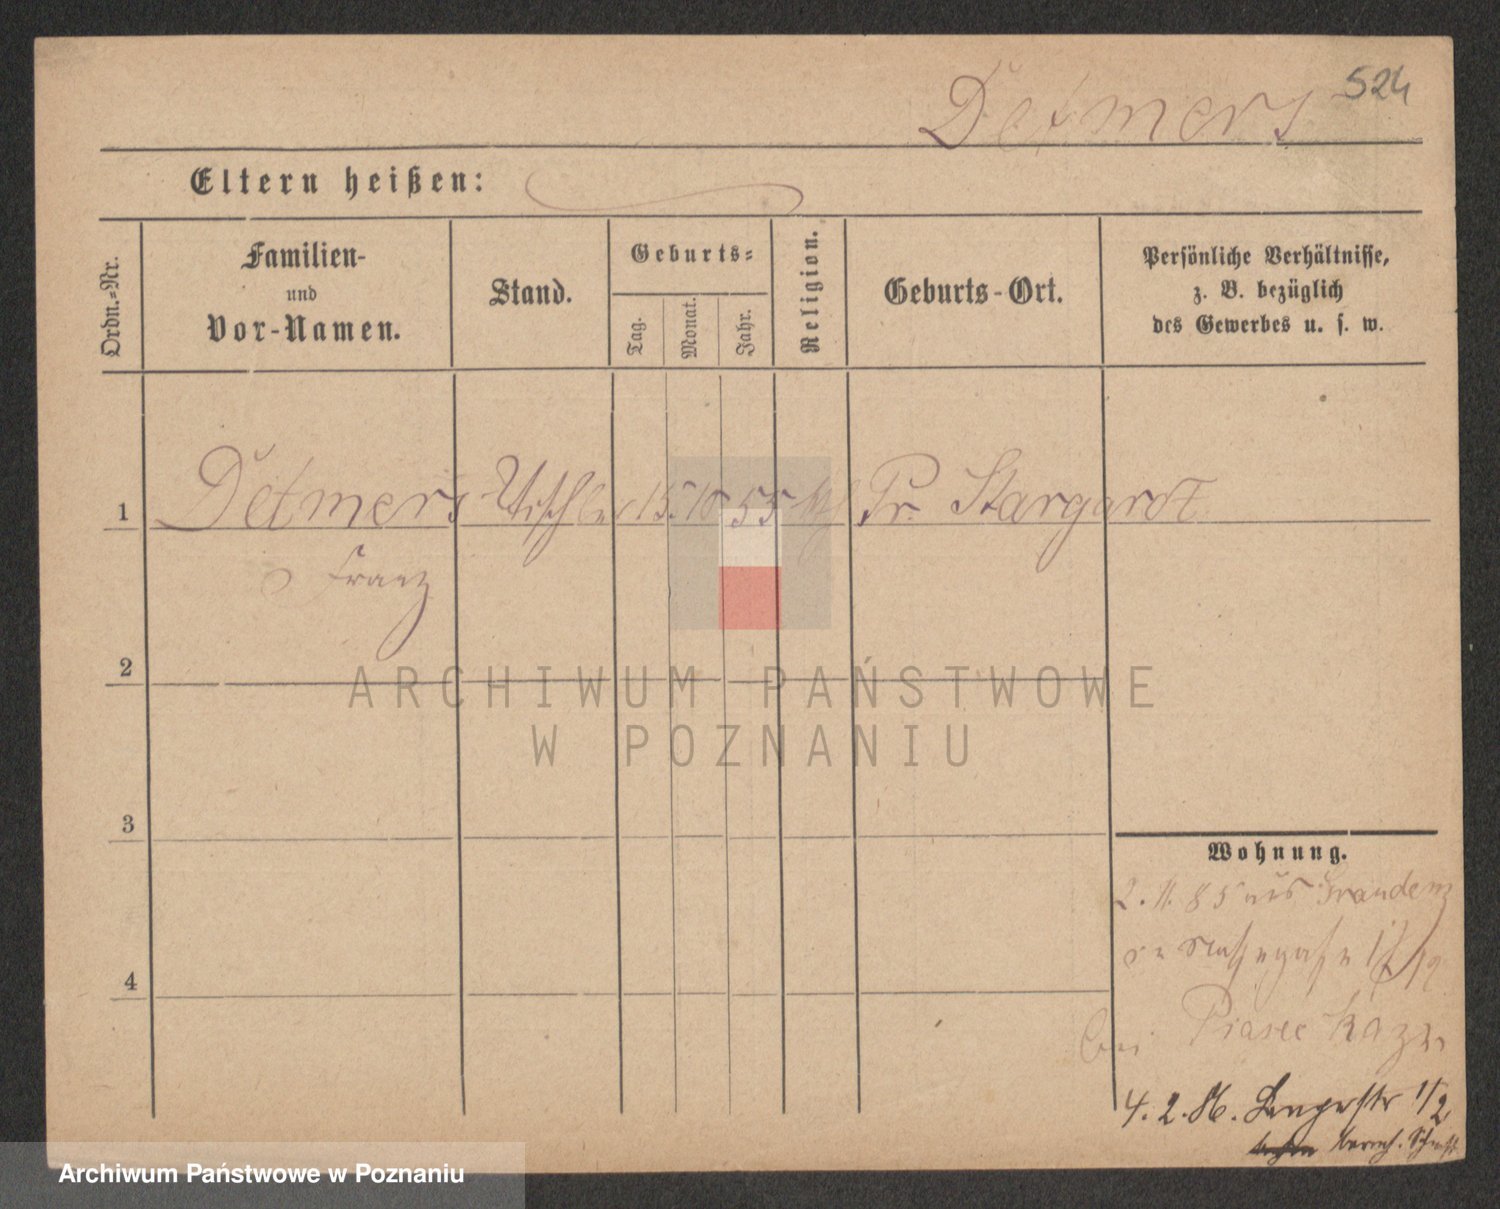 524
Detmers
Eltern heißen:
Ordn.-Nr.
Familien-
und
Vor-Namen.
Stand.
Geburts-
Tag.
Monat.
Jahr.
Religion.
Geburts-Ort.
Persönliche Verhältnisse,
z. B. bezüglich
des Gewerbes u. s. w.
1 Detmers Tischler 15. 10 55 Pr. Stargardt
Franz
2
ARCHIWUM PAŃSTWOWE
W POZNANIU
3
Wohnung.
2. 11. 85 aus Graudenz
4
bei
4. 2. 86.
Archiwum Państwowe w Poznaniu